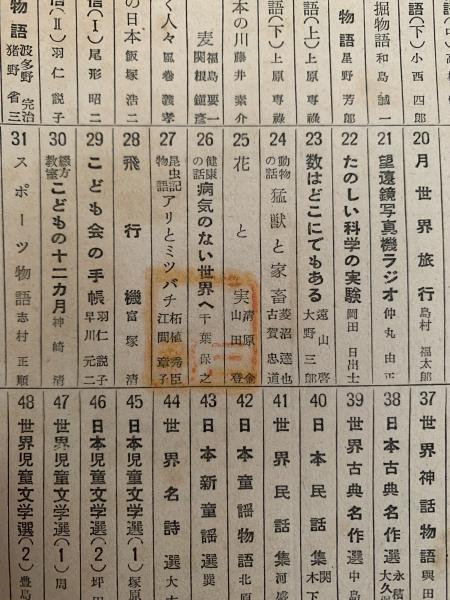 語(下) 小西四郎
掘物語 和島誠一
物語 星野芳郎
語(上) 上原専禄
語(下) 上原専禄
本の川 藤井素介
麦 福島要一 関根
く人々 風巻義孝
の日本 飯塚浩二
尾形昭二
羽仁説子
物語 波多野完治 猪野省三
20 月世界旅行 島村福太郎
21 望遠鏡写真機ラジオ 仲丸由正
22 たのしい科学の実験 岡田日出士
23 数はどこにでもある 遠山啓 大野三郎
24 動物の話 猛獣と家畜 菱沼達也 古賀忠道
25 花と実 清原金 山田登
26 健康の話 病気のない世界へ 千葉保之
27 昆虫記物語 アリとミツバチ 柘植秀臣 江間章子
28 飛行機 富塚清
29 こども会の手帳 羽仁説子 早川元二
30 綴方教室 こどもの十二カ月 神崎清
31 スポーツ物語 志村正順
37 世界神話物語 與田
38 日本古典名作選 永積 大久保
39 世界古典名作選 中島
40 日本民話集 関 木下
41 世界民話集 河盛
42 日本童話物語 北原
43 日本新童謡選 巽
44 世界名詩選 大木
45 日本児童文学選(1) 塚原
46 日本児童文学選(2) 坪田
47 世界児童文学選(1) 周
48 世界児童文学選(2) 豊島